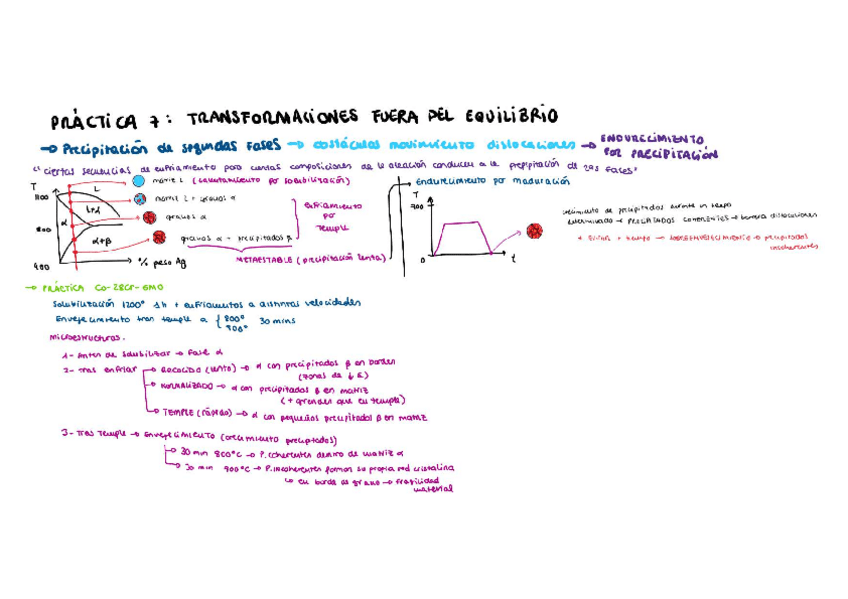 PRÁCTICA 7: TRANSFORMACIONES FUERA DEL EQUILIBRIO
→ Precipitación de segundas fases → obstáculos movimiento dislocaciones → ENDURECIMIENTO
POR PRECIPITACIÓN
"Ciertas secuencias de enfriamiento para ciertas composiciones de la aleación conducen a la precipitación de 2as fases"
T
1100
800
400
L
L+α
α
α+β
% peso Ag
matriz L (calentamiento por solubilización)
matriz L + granos α
granos α
granos α + precipitados β
enfriamiento
por
temple
METAESTABLE (precipitación lenta)
endurecimiento por maduración
T
700
0
t
crecimiento de precipitados durante un tiempo
determinado → PRECIPITADOS COHERENTES → barrera dislocaciones
+ tiempo → SOBREENVEJECIMIENTO → precipitados
incoherentes
→ PRÁCTICA Co-28Cr-6Mo
Solubilización 1200° 1h + enfriamientos a distintas velocidades
Envejecimiento tras temple a { 800° 30 mins
900°
microestructuras.
1- Antes de solubilizar → Fase α
2- Tras enfriar → RECOCIDO (lento) → α con precipitados β en bordes
(zonas de ↓ E)
→ NORMALIZADO → α con precipitados β en matriz
(+ grandes que en temple)
→ TEMPLE (rápido) → α con pequeños precipitados β en matriz
3- Tras Temple → Envejecimiento (crecimiento precipitados)
→ 30 min 800°C → P. coherentes dentro de matriz α
→ 30 min 900°C → P. incoherentes forman su propia red cristalina
↳ en borde de grano → fragilidad
material